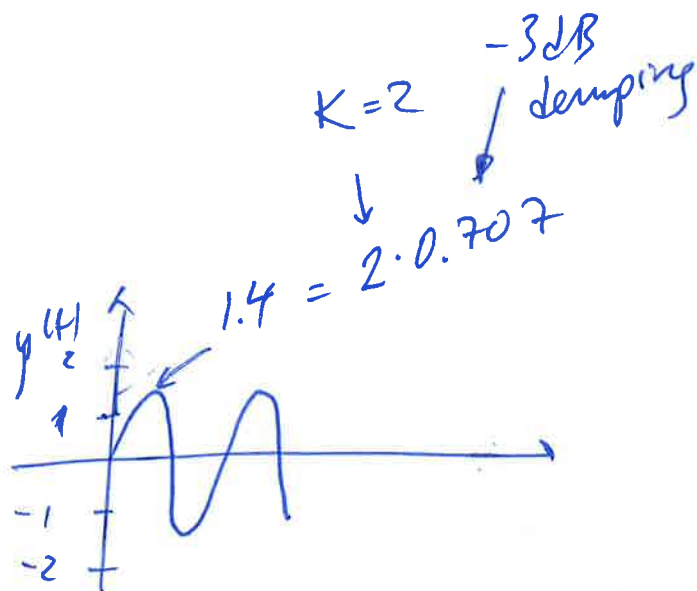 -3dB
K=2 damping
1.4 = 2·0.707
y(t)
2
1
-1
-2